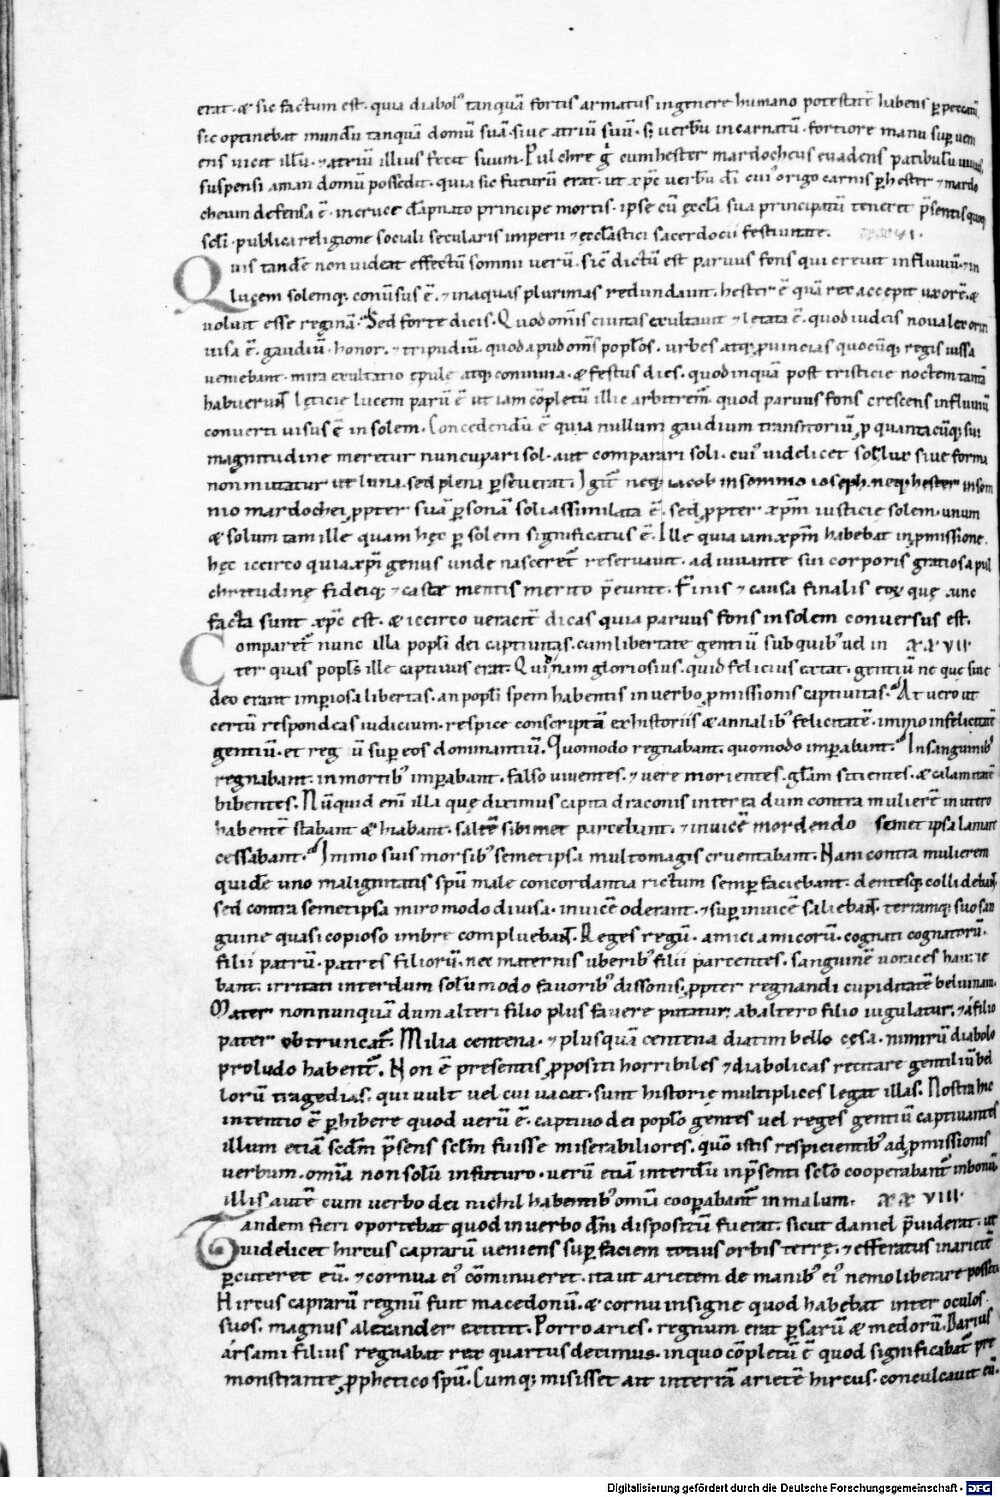 erat · & sic factum est · quia diabol' tanquā fortis armatus in genere humano potestatē habens p̱ peccatū
sic optinebat mundū tanquā domū suā · siue atriū suū · s; uerbū incarnatū · fortiore manu sup̱ueni
ens uicit illū · ⁊ atriū illius fecit suum. Pulchre g̊ cum hester mardocheus euadens patibulū
suspensi aman domū possedit · quia sic futurū erat · ut xp̄c uerbū dī cui' origo carnis p̱ hester ⁊ mardo
cheum defensa ē · in cruce dāpnato principe mortis · ipse cū ęccl'a sua principatū teneret p̄sentis quoq;
sc̄li · publica religione sociali secularis imperii ⁊ ęccl'astici sacerdocii festiuitate.
Quis tandē non uideat effectū somnii uerū · sic̄ dictū est paruus fons qui creuit in fluuiū · ⁊ in
lucem solemq; conuīsus ē · ⁊ in aquas plurimas redundauit · hester ē quā rex accepit uxorē · &
uoluit esse reginā. Sed forte dicis. Quod om̄is ciuitas exultauit ⁊ lętata ē · quod iudeis noua lex oriri
uisa ē · gaudiū · honor · ⁊ tripudiū · quod apud om̄s popl'os · urbes atq; p̱uincias quocūq; regis iussa
ueniebant · mira exultatio ępulę atq; conuiuia · & festus dies · quod inquā post tristicie noctem tantā
habuerun̄t lęticię lucem parū ē ut iam cōpletū illic arbitrem̄ · quod paruus fons crescens in fluuiū
conuerti uisus ē in solem. Concedendū ē quia nullum gaudium transitoriū p̱ quantacūq; sui
magnitudine meretur nuncupari sol · aut comparari soli · cui' uidelicet sol lux siue forma
non mutatur ut luna · sed plena p̱seuerat. Igit̄ neq; iacob in somnio ioseph · neq; hester in som
nio mardochei p̱pter suā p̱sonā soli assimilata ē · sed p̱pter xp̄m iusticię solem · unum
& solum tam ille quam hęc p̱ solem significatus ē. Ille quia iam xp̄m habebat in p̱missione
hęc iccirco quia xp̄i genus unde nasceret̄ reseruauit · adiuuante sui corporis gratiosa pul
chritudinę fideiq; ⁊ castę mentis merito p̄eunte. Finis ⁊ causa finalis eox quę tunc
facta sunt xp̄c est · & iccirco ueracit̄ dicas quia paruus fons in solem conuersus est.
Comparet̄ nunc illa popl'i dei captiuitas · cum libertate gentiū sub quib' uel in xxvii
ter quas popl's ille captiuus erat. Quid nam gloriosius · quid felicius extat · gentiū ne quę sine
deo erant imp̱iosa libertas · an popl'i spem habentis in uerbo p̱missionis captiuitas. At uero ut
certū respondeas iudicium · respice conscriptā ex historiis & annalib' felicitatē · immo infelicitatē
gentiū · et reg ū sup̱ eos dominantiū. Quomodo regnabant · quomodo imp̱abant. In sanguinib'
regnabant · in mortib' imp̱abant · falso uiuentes · ⁊ uere morientes · gl'am sitientes · & calamitatē
bibentes. Nūquid enī illa quę diximus capita draconis interea dum contra mulierē in utero
habentē stabant & hiabant · saltē sibimet parcebant · ⁊ inuicē mordendo semet ipsa laniare
cessabant. Immo suis morsib' semetipsa multo magis cruentabant. Nam contra mulierem
quidē uno malignitatis sp̄u male concordantia rictum semp̱ faciebant · dentesq; collidebān̄t
sed contra semetipsa miro modo diuisa · inuicē oderant · ⁊ sup̱ inuicē saliebān̄t · terramq; suo san
guine quasi copioso imbre compluebān̄t. Reges regū · amici amicorū · cognati cognatorū ·
filii patrū · patres filiorū · nec maternis uberib' filii parcentes · sanguinē uoraces haurie
bant · irritati interdum solūmodo fauorib' dissonis · p̱pter regnandi cupiditatē beluinam.
Mater nonnunquā dum alteri filio plus fauere putatur · ab altero filio iugulatur · ⁊ a filio
pater obtruncat̄. Milia centena · ⁊ plusquā centena diatim bello cęsa · nimirū diabolo
proludo habent̄. Non ē presentis p̱positi horribiles ⁊ diabolicas recitare gentiliū bel
lorū tragedias · qui uult uel cui uacat · sunt historię multiplices legat illas. Nostra hic
intentio ē p̱hibere quod uerū ē · captiuo dei popl'o gentes uel reges gentiū captiuantes
illum etiā sc̄dm p̄sens sc̄lm fuisse miserabiliores · quō istis respicientib' ad p̱missionis
uerbum · om̄ia non solū in futuro · uerū etiā interdū in p̄senti sc̄lo cooperabant̄ in bonū
illis autē cum uerbo dei nichil habentib' om̄ia coop̱abant̄ in malum. xxviii
Tandem fieri oportebat quod in uerbo dn̄i dispositū fuerat · sicut daniel p̄uiderat · ut
uidelicet hircus caprarū ueniens sup̱ faciem totius orbis terrę · ⁊ efferatus in arietē
p̱cuteret eū · ⁊ cornua ei' cōminueret · ita ut arietem de manib' ei' nemo liberare possit
Hircus caprarū regnū fuit macedonū · & cornu insigne quod habebat inter oculos
suos · magnus alexander extitit. Porro aries · regnum erat p̱sarū & medorū. Darius
arsami filius regnabat rex quartus decimus · in quo cōpletū ē quod significabat̄ pre
monstrante p̱phetico sp̄u. Cumq; misisset ait in terrā arietē hircus · conculcauit eū ·
Digitalisierung gefördert durch die Deutsche Forschungsgemeinschaft - DFG